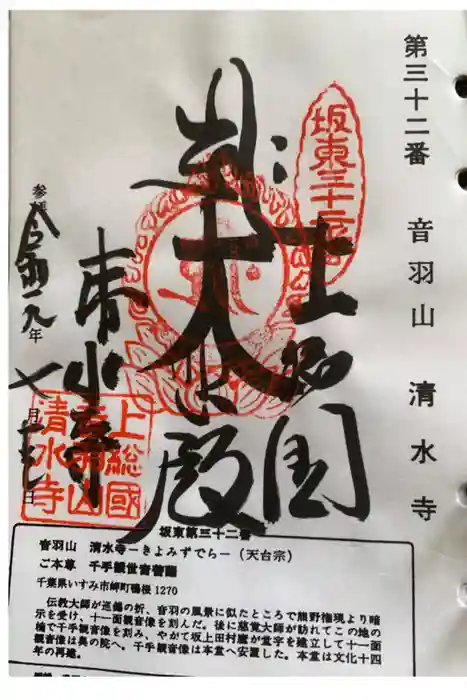 第三十二番　音羽山　清水寺
坂東三十二番
上総国
大悲殿
清水寺
参拝 令和元年
七月 日
上総國
音羽山
清水寺
坂東第三十二番
音羽山　清水寺－きよみずでら－（天台宗）
ご本尊　千手観世音菩薩
千葉県いすみ市岬町鴨根1270
伝教大師が巡錫の折、音羽の風景に似たところで熊野権現より暗
示を受け、十一面観音像を刻んだ。後に慈覚大師が訪れてこの地の
楠で千手観音像を刻み、やがて坂上田村麿が堂宇を建立して十一面
観音像は奥の院へ。千手観音像は本堂へ安置した。本堂は文化十四
年の再建。